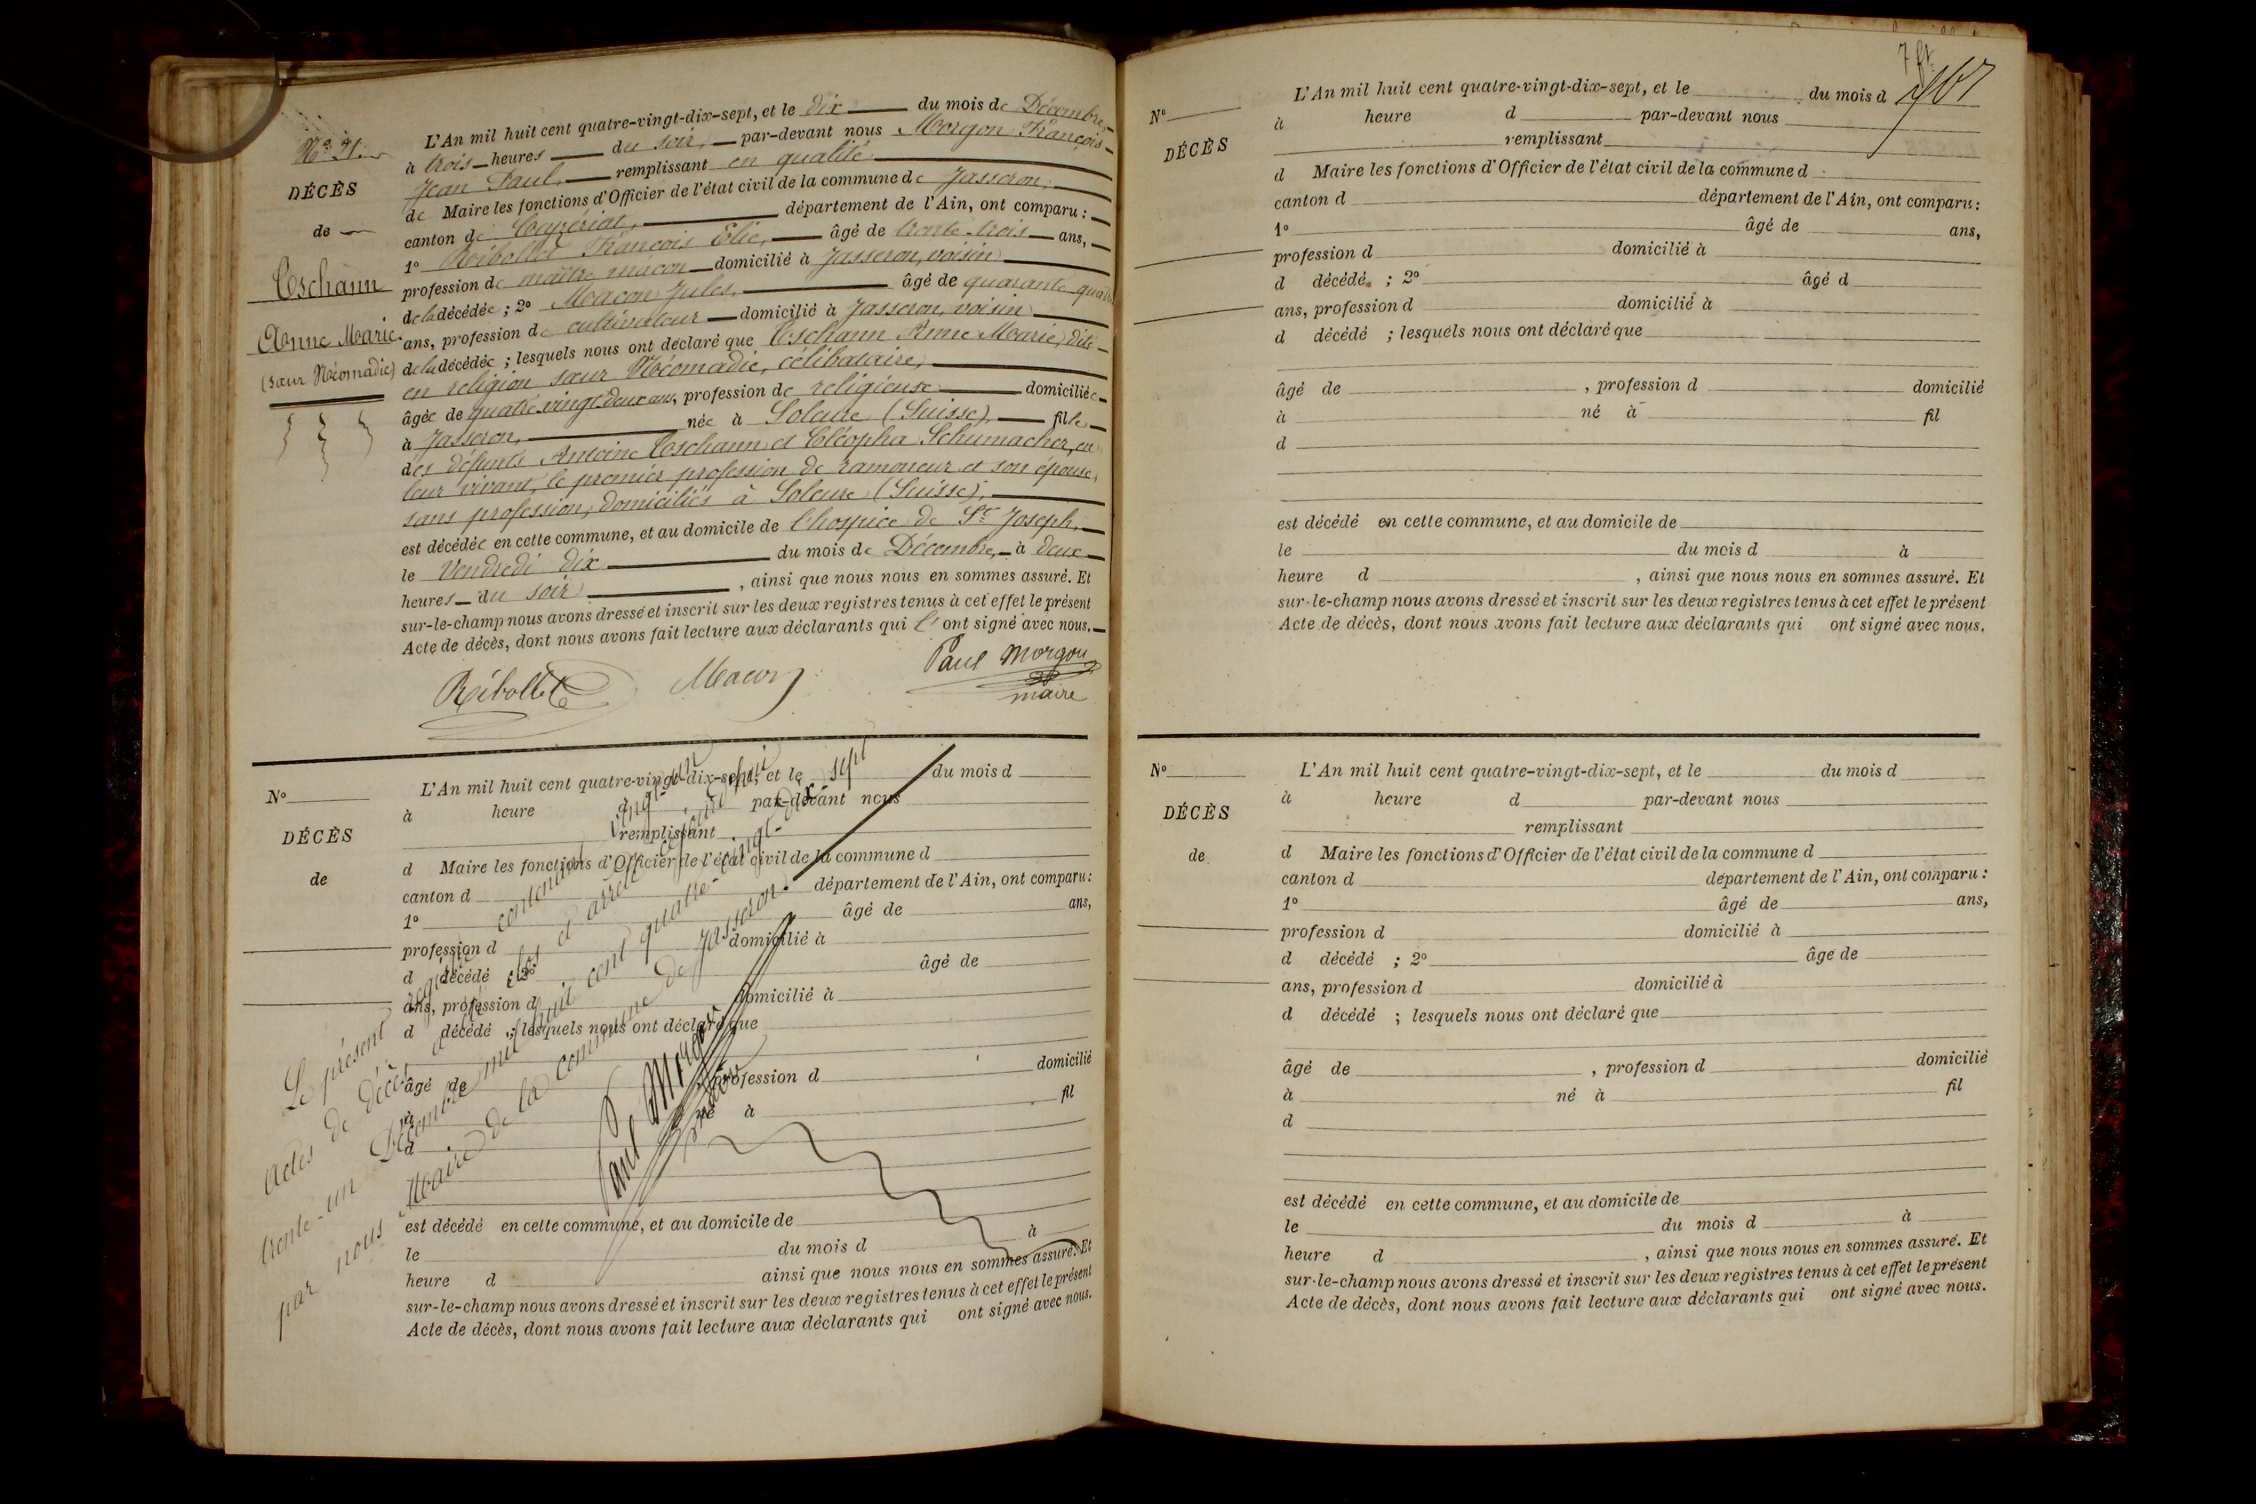 N° 21.
DÉCÈS
de
Tschann
Anne Marie.
(sœur Nicomadie)
L'An mil huit cent quatre-vingt-dix-sept, et le dix du mois de Décembre,
à trois heures du soir, par-devant nous Morgon François
Jean Paul, remplissant en qualité
de Maire les fonctions d'Officier de l'état civil de la commune de Jasseron,
canton de Ceyzériat, département de l'Ain, ont comparu :
1° Réibollet François Elie, âgé de trente-trois ans,
profession de maître maçon domicilié à Jasseron, voisin
de la décédée ; 2° Macon Jules, âgé de quarante quatre
ans, profession de cultivateur domicilié à Jasseron, voisin
de la décédée ; lesquels nous ont déclaré que Tschann Anne Marie, dite
en religion sœur Nicomadie, célibataire,
âgée de quatre-vingt-deux ans, profession de religieuse domiciliée
à Jasseron, née à Soleure (Suisse), fille
des défunts Antoine Tschann et Cléopha Schumacher, en
leur vivant, le premier profession de ramoneur et son épouse,
sans profession, domiciliés à Soleure (Suisse),
est décédée en cette commune, et au domicile de l'hospice de St Joseph,
le Vendredi dix du mois de Décembre, à deux
heures du soir, ainsi que nous nous en sommes assuré. Et
sur-le-champ nous avons dressé et inscrit sur les deux registres tenus à cet effet le présent
Acte de décès, dont nous avons fait lecture aux déclarants qui l' ont signé avec nous.
Réibollet Macon Paul Morgon
maire
N°
DÉCÈS
de
L'An mil huit cent quatre-vingt-dix-sept, et le du mois d
à heure d par-devant nous
remplissant
d Maire les fonctions d'Officier de l'état civil de la commune d
canton d département de l'Ain, ont comparu :
1° âgé de ans,
profession d domicilié à
d décédé ; 2° âgé de
ans, profession d domicilié à
d décédé ; lesquels nous ont déclaré que
âgé de , profession d domicilié
à né à fil
d
est décédé en cette commune, et au domicile de
le du mois d à
heure d ainsi que nous nous en sommes assuré. Et
sur-le-champ nous avons dressé et inscrit sur les deux registres tenus à cet effet le présent
Acte de décès, dont nous avons fait lecture aux déclarants qui ont signé avec nous.
Le présent registre contenant vingt-un
actes de décès a été clos et arrêté cejourd'hui
trente-un Décembre mil huit cent quatre-vingt-dix-sept
par nous Maire de la commune de Jasseron.
Paul Morgon
7 ft
N°
DÉCÈS
L'An mil huit cent quatre-vingt-dix-sept, et le du mois d
à heure d par-devant nous
remplissant
d Maire les fonctions d'Officier de l'état civil de la commune d
canton d département de l'Ain, ont comparu :
1° âgé de ans,
profession d domicilié à
d décédé ; 2° âgé d
ans, profession d domicilié à
d décédé ; lesquels nous ont déclaré que
âgé de , profession d domicilié
à né à fil
d
est décédé en cette commune, et au domicile de
le du mois d à
heure d , ainsi que nous nous en sommes assuré. Et
sur-le-champ nous avons dressé et inscrit sur les deux registres tenus à cet effet le présent
Acte de décès, dont nous avons fait lecture aux déclarants qui ont signé avec nous.
N°
DÉCÈS
de
L'An mil huit cent quatre-vingt-dix-sept, et le du mois d
à heure d par-devant nous
remplissant
d Maire les fonctions d'Officier de l'état civil de la commune d
canton d département de l'Ain, ont comparu :
1° âgé de ans,
profession d domicilié à
d décédé ; 2° âgé de
ans, profession d domicilié à
d décédé ; lesquels nous ont déclaré que
âgé de , profession d domicilié
à né à fil
d
est décédé en cette commune, et au domicile de
le du mois d à
heure d , ainsi que nous nous en sommes assuré. Et
sur-le-champ nous avons dressé et inscrit sur les deux registres tenus à cet effet le présent
Acte de décès, dont nous avons fait lecture aux déclarants qui ont signé avec nous.